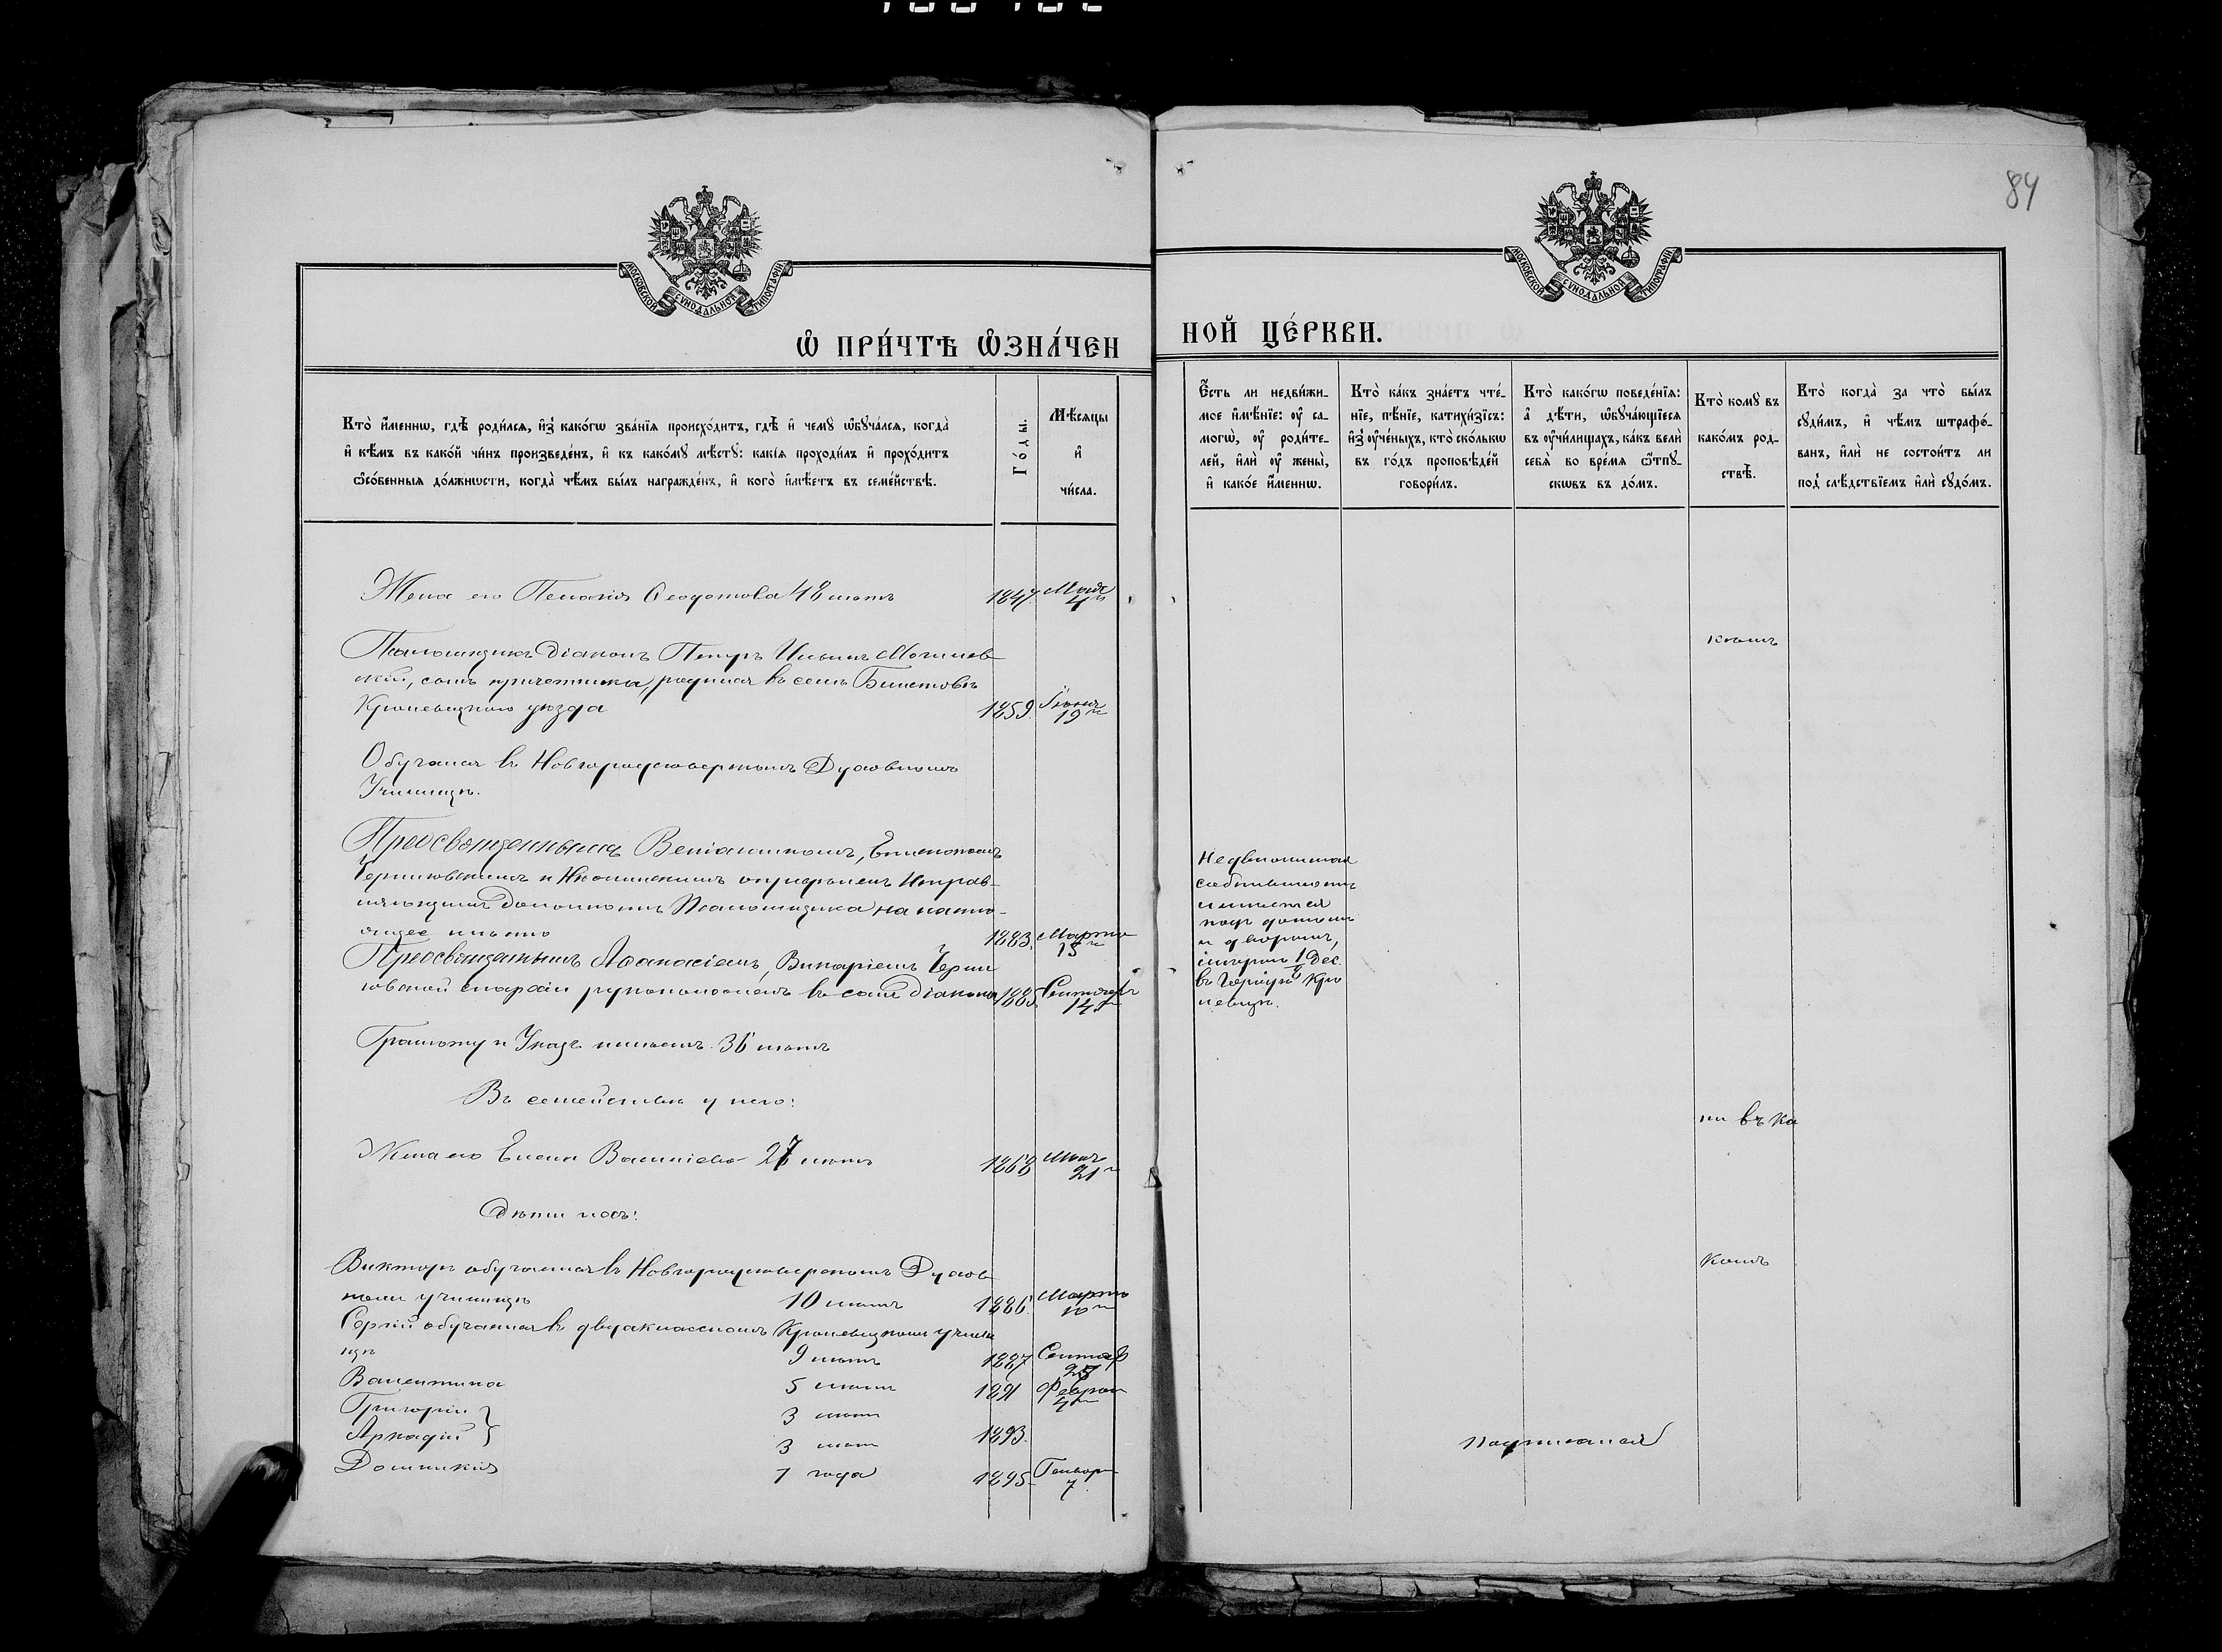 84
МОСКОВСКОЙ СѴНОДАЛЬНОЙ ТИПОГРАФІИ
МОСКОВСКОЙ СѴНОДАЛЬНОЙ ТИПОГРАФІИ
Ѡ ПРИ́ЧТѢ ѠЗНА́ЧЕН
НОЙ ЦЕ́РКВИ.
Кто̀ и҆́менно, гдѣ̀ роди́лсѧ, и҆з̾ како́гѡ зва́нїѧ происхо́дитъ, гдѣ̀ и҆ чемꙋ̀ ѡ҆бꙋча́лсѧ, когда̀
и҆ кѣ́мъ въ како́й чи́нъ произведе́нъ, и҆ къ како́мꙋ мѣ́стꙋ: какі̑ѧ проходи́лъ и҆ прохо́дитъ
ѻ҆со́бенныѧ до́лжнѡсти, когда̀ чѣ́мъ бы́лъ награжде́нъ, и҆ кого̀ и҆мѣ́етъ въ семе́йствѣ.
Го́ды.
Мѣ́сѧцы
и҆
чи́сла.
Е҆́сть ли недви́жи-
мое и҆мѣ́нїе: оу҆ са-
могѡ̀, оу҆ роди́те-
лей, и҆лѝ оу҆ жены̀,
и҆ како́е и҆́менно.
Кто̀ ка́къ зна́етъ чте́-
нїе, пѣ́нїе, катихи́зїсъ:
и҆з̾ оу҆че́ныхъ, кто̀ ско́лькѡ
въ го́дъ проповѣ́дей
говори́лъ.
Кто̀ како́гѡ поведе́нїѧ:
а҆ дѣ́ти, ѡ҆бꙋча́ющїесѧ
въ оу҆чи́лищахъ, ка́къ велѝ
себѧ̀ во вре́мѧ ѿпꙋ-
скѡвъ въ до́мъ.
Кто̀ комꙋ̀ въ
како́мъ род-
ствѣ̀.
Кто̀ когда̀ за что̀ бы́лъ
сꙋди́мъ, и҆ чѣ́мъ штрафо́-
ванъ, и҆лѝ не состои́тъ ли
под̾ слѣ́дствїемъ и҆лѝ сꙋдо́мъ.
Жена его Пелагія Ѳеодотова 48 лѣтъ 1847. Мая 4
Псаломщикъ Діаконъ Петръ Ильинъ Могилев
скій, сынъ причетника, родился въ селѣ
Кролевецкаго уѣзда 1859. Іюня 19
Обучался въ Новгородсѣверскомъ Духовномъ
Училищѣ.
Преосвященнымъ Веніаминомъ, Епископомъ
Черниговскимъ и Нѣжинскимъ опредѣленъ Исправ-
ляющимъ Должность Псаломщика на насто-
ящее мѣсто 1883. Марта 15
Преосвященнымъ Аѳанасіемъ, Викаріемъ Черни
говской епархіи рукоположенъ въ санъ діакона 1885. Сентября 14
Грамоту и Указъ имѣетъ. 36 лѣтъ
Въ семействѣ у него:
Жена его Елена Василіева 27 лѣтъ 1868 Мая 21
Дѣти ихъ:
Викторъ обучается въ Новгородсѣверскомъ Духов
номъ училищѣ 10 лѣтъ 1886. Марта 10
Сергій обучается въ двухклассномъ Кролевецкомъ учили
щѣ 9 лѣтъ 1887 Сентяб
Валентина 5 лѣтъ 1891 Феврал 4
Григорій 3 лѣтъ
Аркадій 3 лѣтъ 1893.
Домникія 1 года 1895 Генвар 7
Недвижимая
собственность
имѣется
подъ домомъ
и дворомъ,
1/8 Дес.
въ городѣ Кро
левцѣ.
ни въ ка
комъ